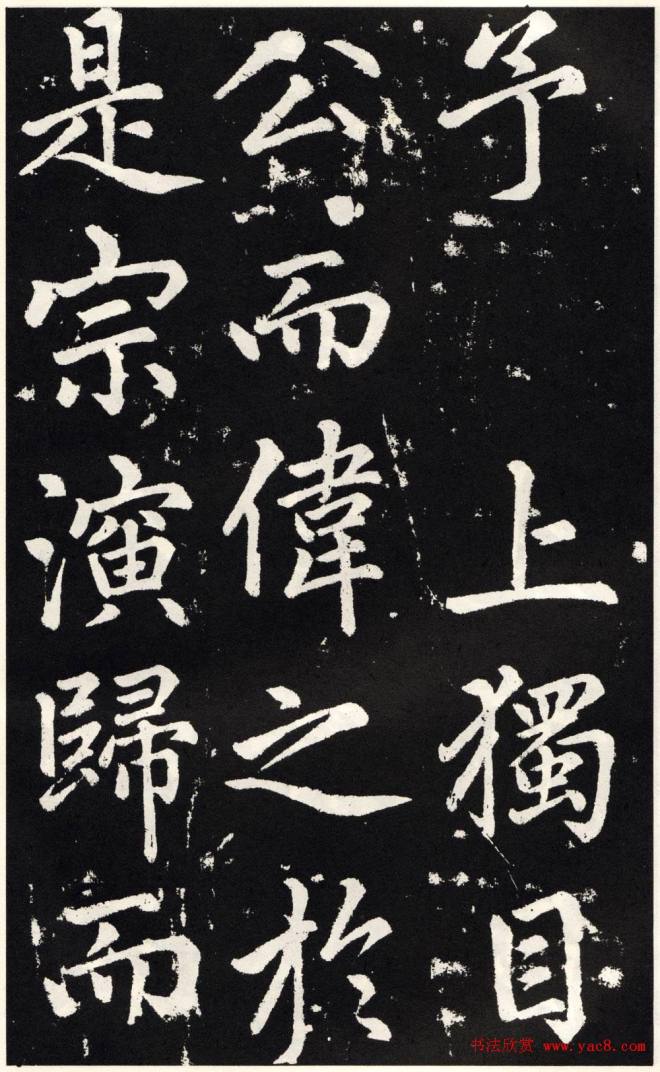 予 上獨目
公而偉之於
是宗演歸而
书法欣赏 www.yac8.com